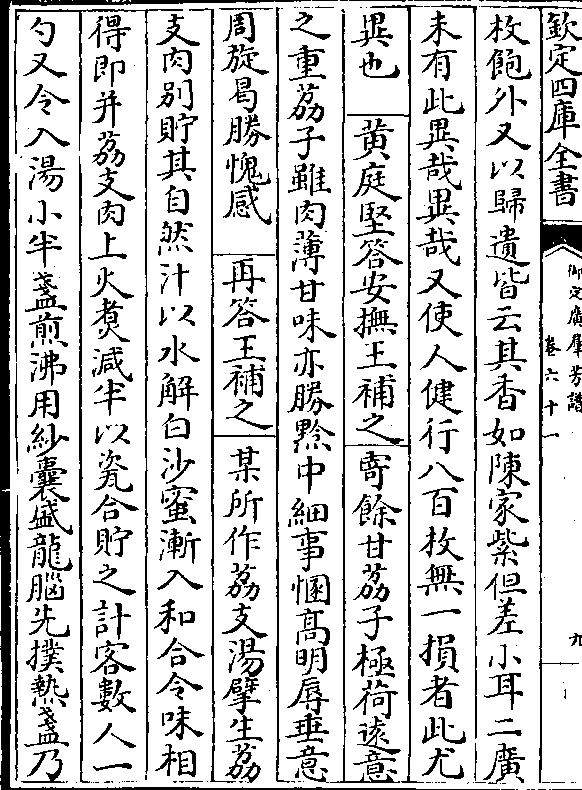 欽定四庫全書
御定廣羣芳譜
卷六十一
九
枚飽外又以歸遺皆云其香如陳家紫但差小耳二廣
未有此異哉異哉又使人健行八百枚無一損者此尤
異也 黄庭堅答安撫王補之 寄餘甘荔子極荷遠意
之重荔子雖肉薄甘味亦勝黔中細事慁髙明辱垂意
周旋曷勝愧感 再答王補之 某所作荔支湯擘生荔
支肉别貯其自然汁以水解白沙蜜漸入和合令味相
得即并荔支肉上火煑減半以瓷合貯之計客數人一
勺又令入湯小半盞煎沸用紗囊盛龍腦先撲熱盞乃